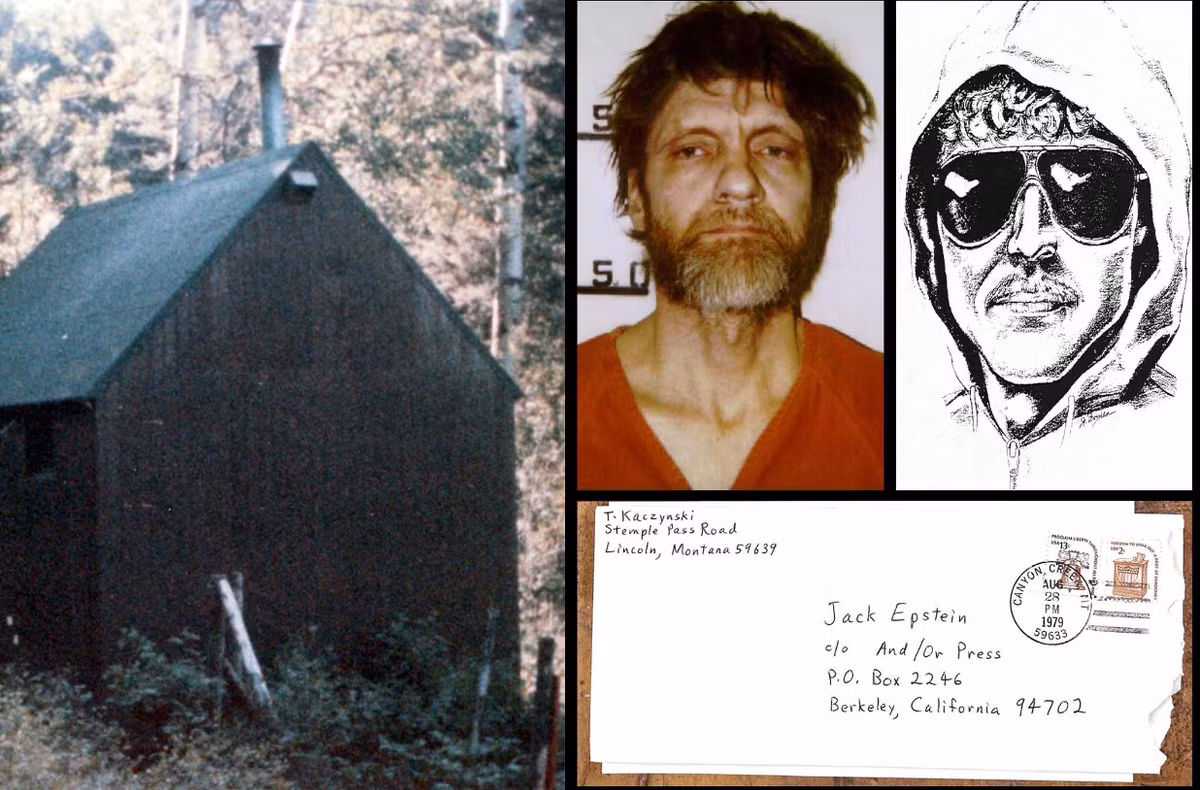 S
S.O
T. Kaczynski
Stemple Pass Road
Lincoln, Montana 59639
USA 13c
USA 2c
CANYON CREEK MT
AUG
28
PM
1979
59633
Jack Epstein
c/o And/Or Press
P.O. Box 2246
Berkeley, California 94702